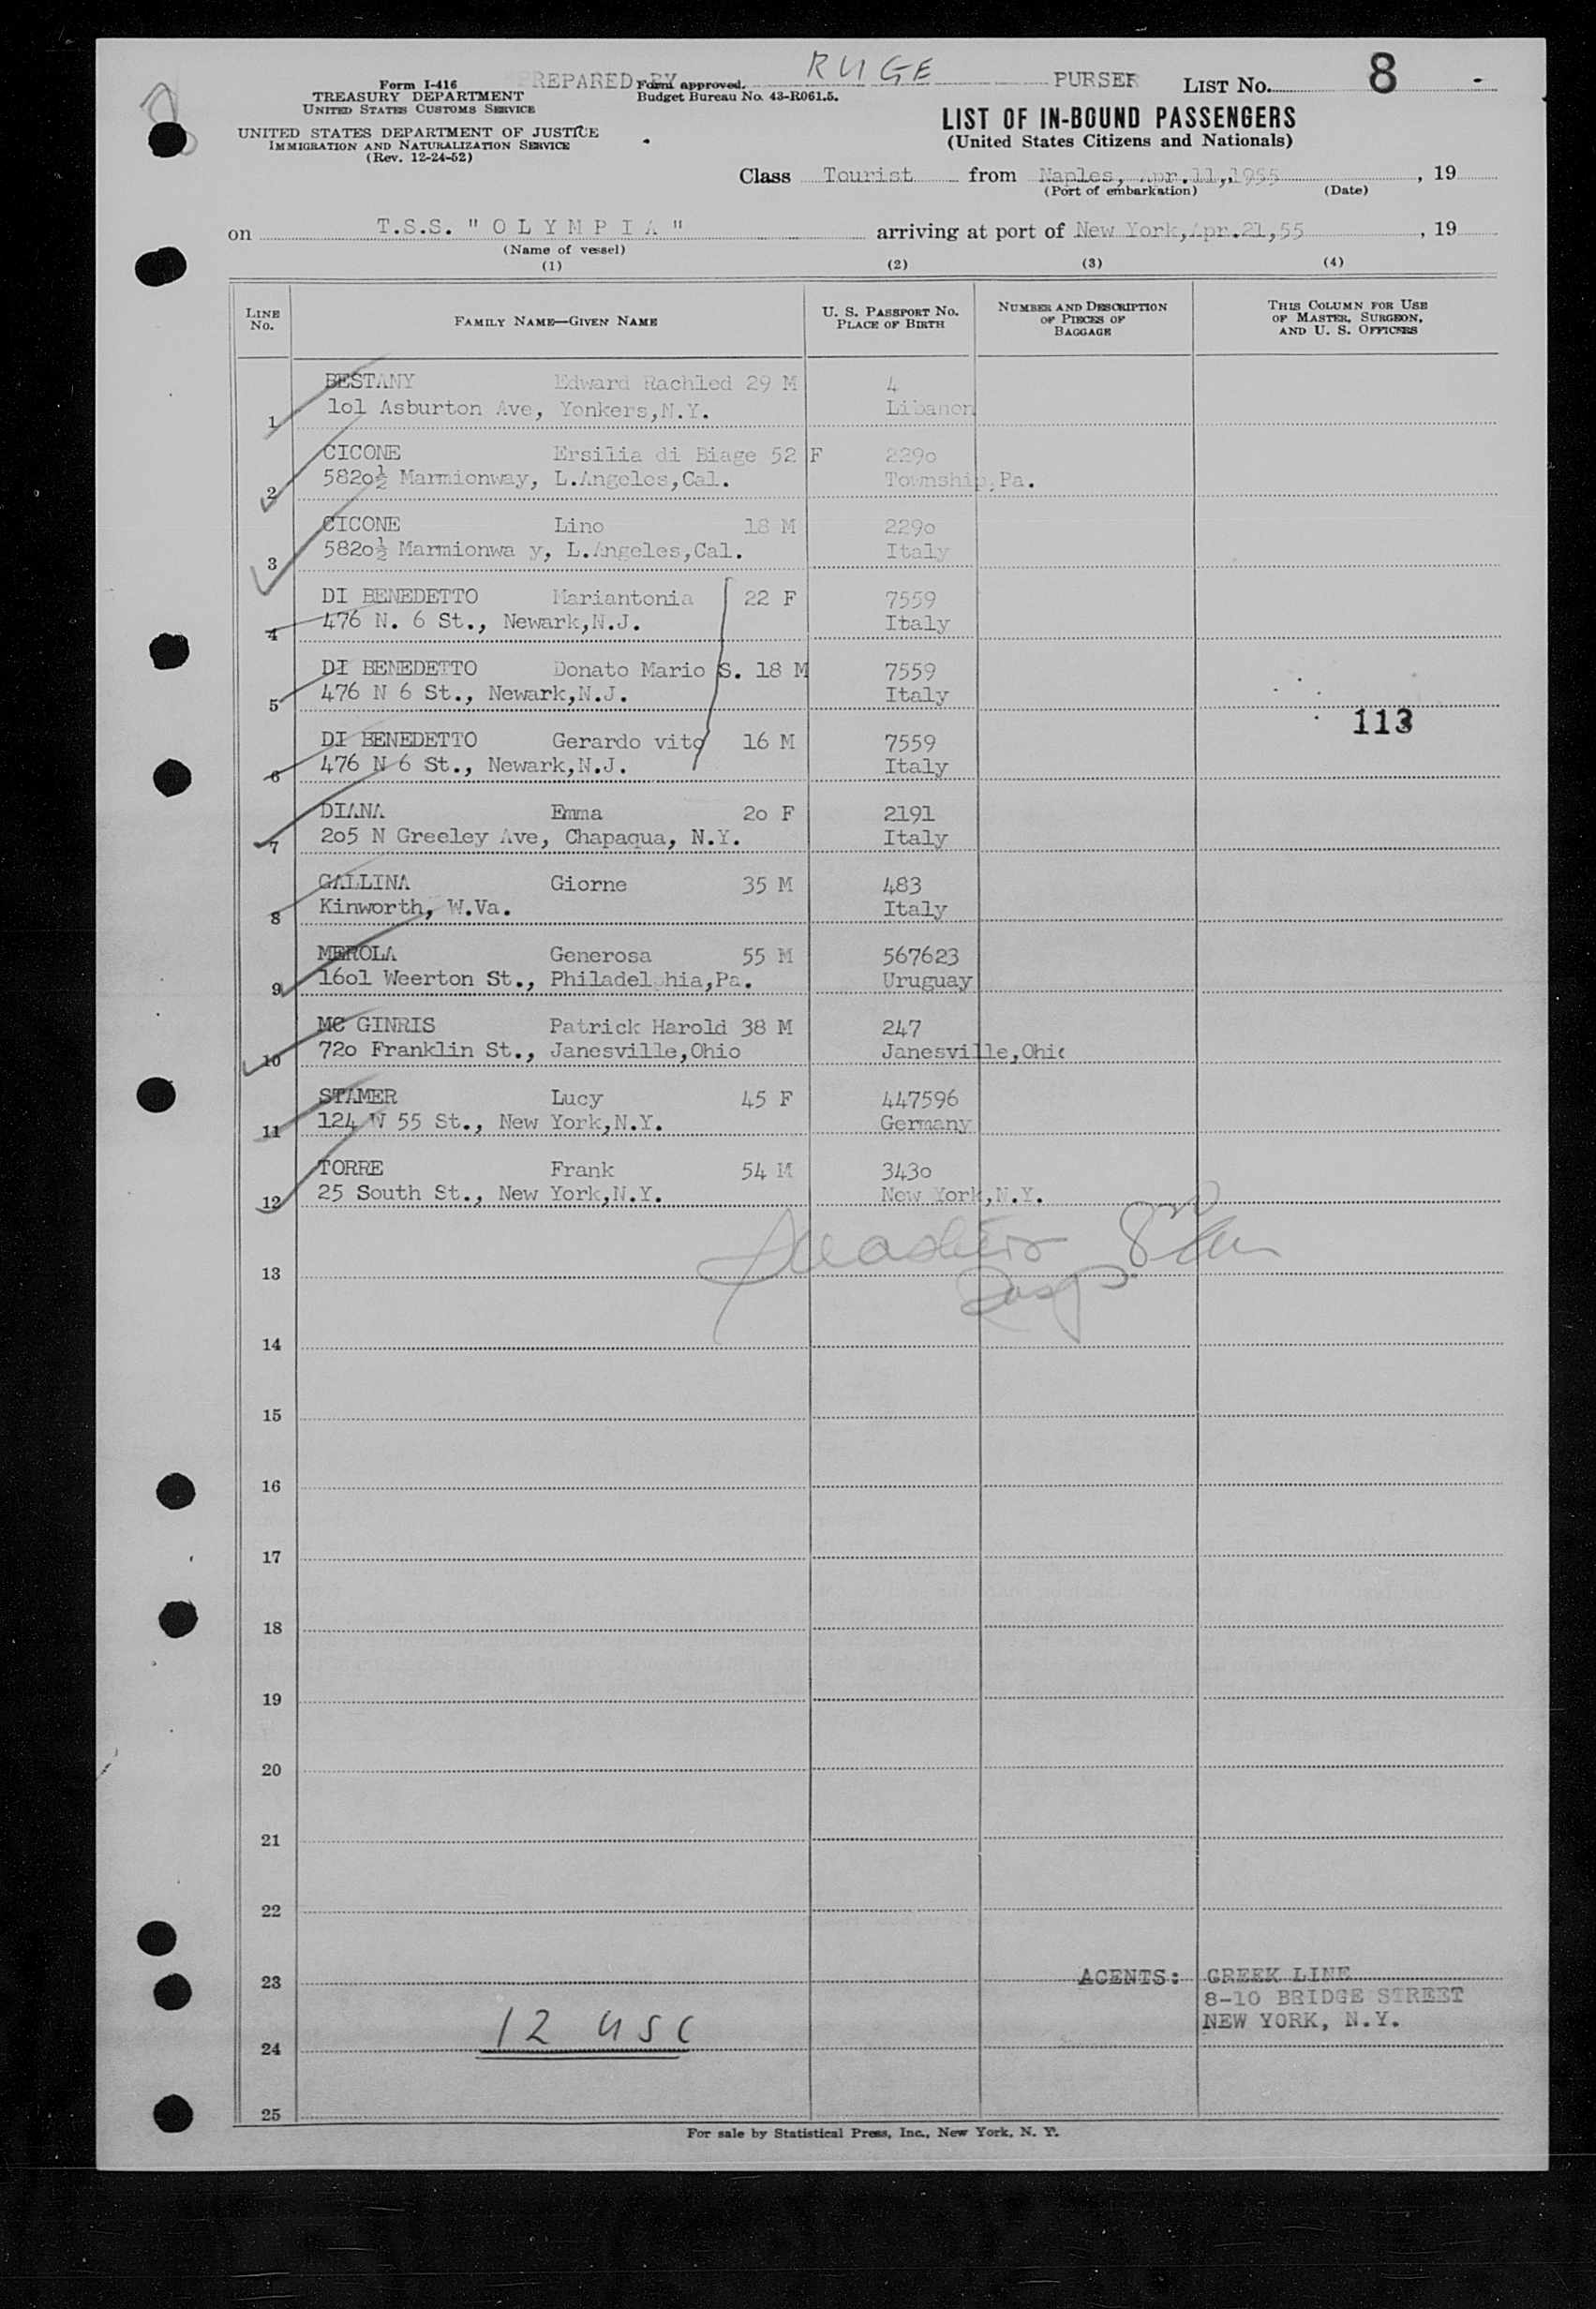 Form I-416
TREASURY DEPARTMENT
UNITED STATES CUSTOMS SERVICE
UNITED STATES DEPARTMENT OF JUSTICE
IMMIGRATION AND NATURALIZATION SERVICE
(Rev. 12-24-52)
PREPARED BY RUGE PURSER
Form approved.
Budget Bureau No. 43-R061.5.
LIST No. 8
LIST OF IN-BOUND PASSENGERS
(United States Citizens and Nationals)
Class Tourist from Naples, Apr.11,1955, 19
(Port of embarkation) (Date)
on T.S.S. "OLYMPIA" arriving at port of New York,Apr.21,55, 19
(Name of vessel)
(1) (2) (3) (4)
LINE No. FAMILY NAME—GIVEN NAME U. S. PASSPORT No. PLACE OF BIRTH NUMBER AND DESCRIPTION OF PIECES OF BAGGAGE THIS COLUMN FOR USE OF MASTER, SURGEON, AND U. S. OFFICERS
BESTANY Edward Rachled 29 M 4
1 lol Asburton Ave, Yonkers,N.Y. Libanon
CICONE Ersilia di Biage 52 F 229o
2 582o½ Marmionway, L.Angeles,Cal. Township,Pa.
CICONE Lino 18 M 229o
3 582o½ Marmionwa y, L.Angeles,Cal. Italy
DI BENEDETTO Mariantonia 22 F 7559
4 476 N. 6 St., Newark,N.J. Italy
DI BENEDETTO Donato Mario S. 18 M 7559
5 476 N 6 St., Newark,N.J. Italy
113
DI BENEDETTO Gerardo vito 16 M 7559
6 476 N 6 St., Newark,N.J. Italy
DIANA Emma 2o F 2191
7 2o5 N Greeley Ave, Chapaqua, N.Y. Italy
GALLINA Giorne 35 M 483
8 Kinworth, W.Va. Italy
MEROLA Generosa 55 M 567623
9 16o1 Weerton St., Philadelphia,Pa. Uruguay
MC GINRIS Patrick Harold 38 M 247
10 72o Franklin St., Janesville,Ohio Janesville,Ohio
STAMER Lucy 45 F 447596
11 124 W 55 St., New York,N.Y. Germany
TORRE Frank 54 M 343o
12 25 South St., New York,N.Y. New York,N.Y.
13
14
15
16
17
18
19
20
21
22
23 AGENTS: GREEK LINE
8-10 BRIDGE STREET
NEW YORK, N.Y.
12 USC
24
25
For sale by Statistical Press, Inc., New York, N. Y.